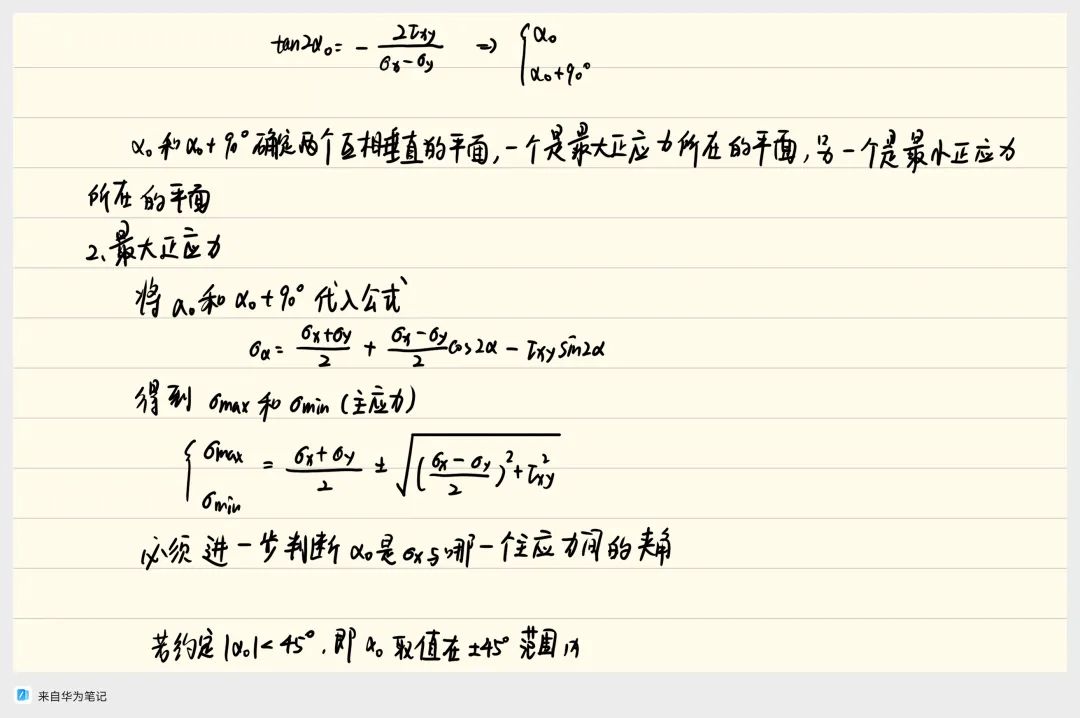 tan2α₀ = - 2τxy / (σx - σy) ⇒ { α₀ ; α₀+90°
α₀和α₀+90°确定两个互相垂直的平面,一个是最大正应力所在的平面,另一个是最小正应力
所在的平面
2、最大正应力
将α₀和α₀+90°代入公式
σα = (σx+σy)/2 + (σx-σy)/2 cos2α - τxy sin2α
得到σmax和σmin(主应力)
{ σmax ; σmin = (σx+σy)/2 ± √(((σx-σy)/2)² + τxy²)
必须进一步判断α₀是σx与哪一个主应力间的夹角
若约定|α₀|<45°,即α₀取值在±45°范围内
来自华为笔记